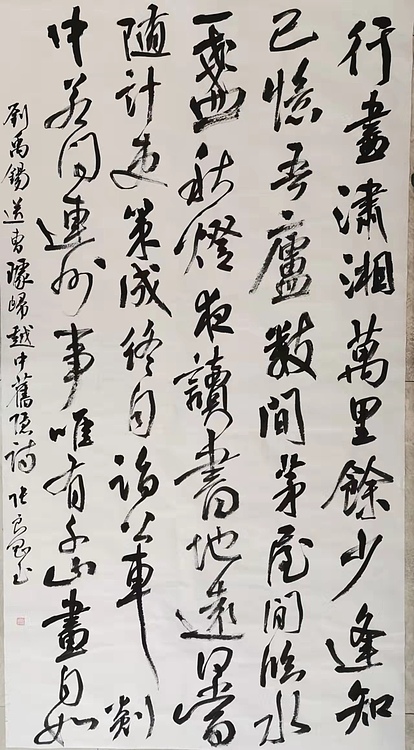 行盡瀟湘萬里餘少逢知
己憶吾廬數間茅屋間臨水
一盞秋燈夜讀書地遠當
隨計吏策成終自詣公車剡
中若問連州事唯有千山畫自如
劉禹錫送曹璩歸越中舊隱詩 張良書